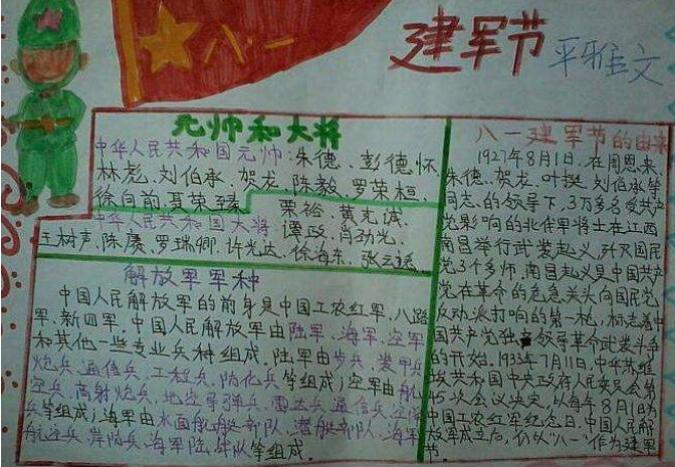 八一
建军节
平雅文
元帅和大将
中华人民共和国元帅:朱德、彭德怀、
林彪、刘伯承、贺龙、陈毅、罗荣桓、
徐向前、聂荣臻
中华人民共和国大将:粟裕、黄克诚、
谭政、肖劲光、
王树声、陈赓、罗瑞卿、许光达、徐海东、张云逸
解放军军种
中国人民解放军的前身是中国工农红军,八路
军,新四军.中国人民解放军由陆军,海军,空军
和其他一些专业兵种组成.陆军由步兵、装甲兵
炮兵,通信兵,工程兵,防化兵等组成;空军由航
空兵,高射炮兵,地空导弹兵,雷达兵,通信兵,空降
兵等组成;海军由水面舰艇部队,潜艇部队,海军
航空兵,岸防兵,海军陆战队等组成.
八一建军节的由来
1927年8月1日,在周恩来,
朱德、贺龙、叶挺、刘伯承等
同志的领导下,3万多名受共产
党影响的北伐军将士在江西
南昌举行武装起义,歼灭国民
党3个多师,南昌起义是中国共产
党在革命的危急关头向国民党
反动派打响的第一枪,标志着中
国共产党独立领导革命武装斗争
的开始.1933年7月11日,中华苏维
埃共和国中央政府人民委员会第
45次会议决定,以每年8月1日为
中国工农红军纪念日.中国人民解
放军成立后,仍以"八一"作为建军
节.